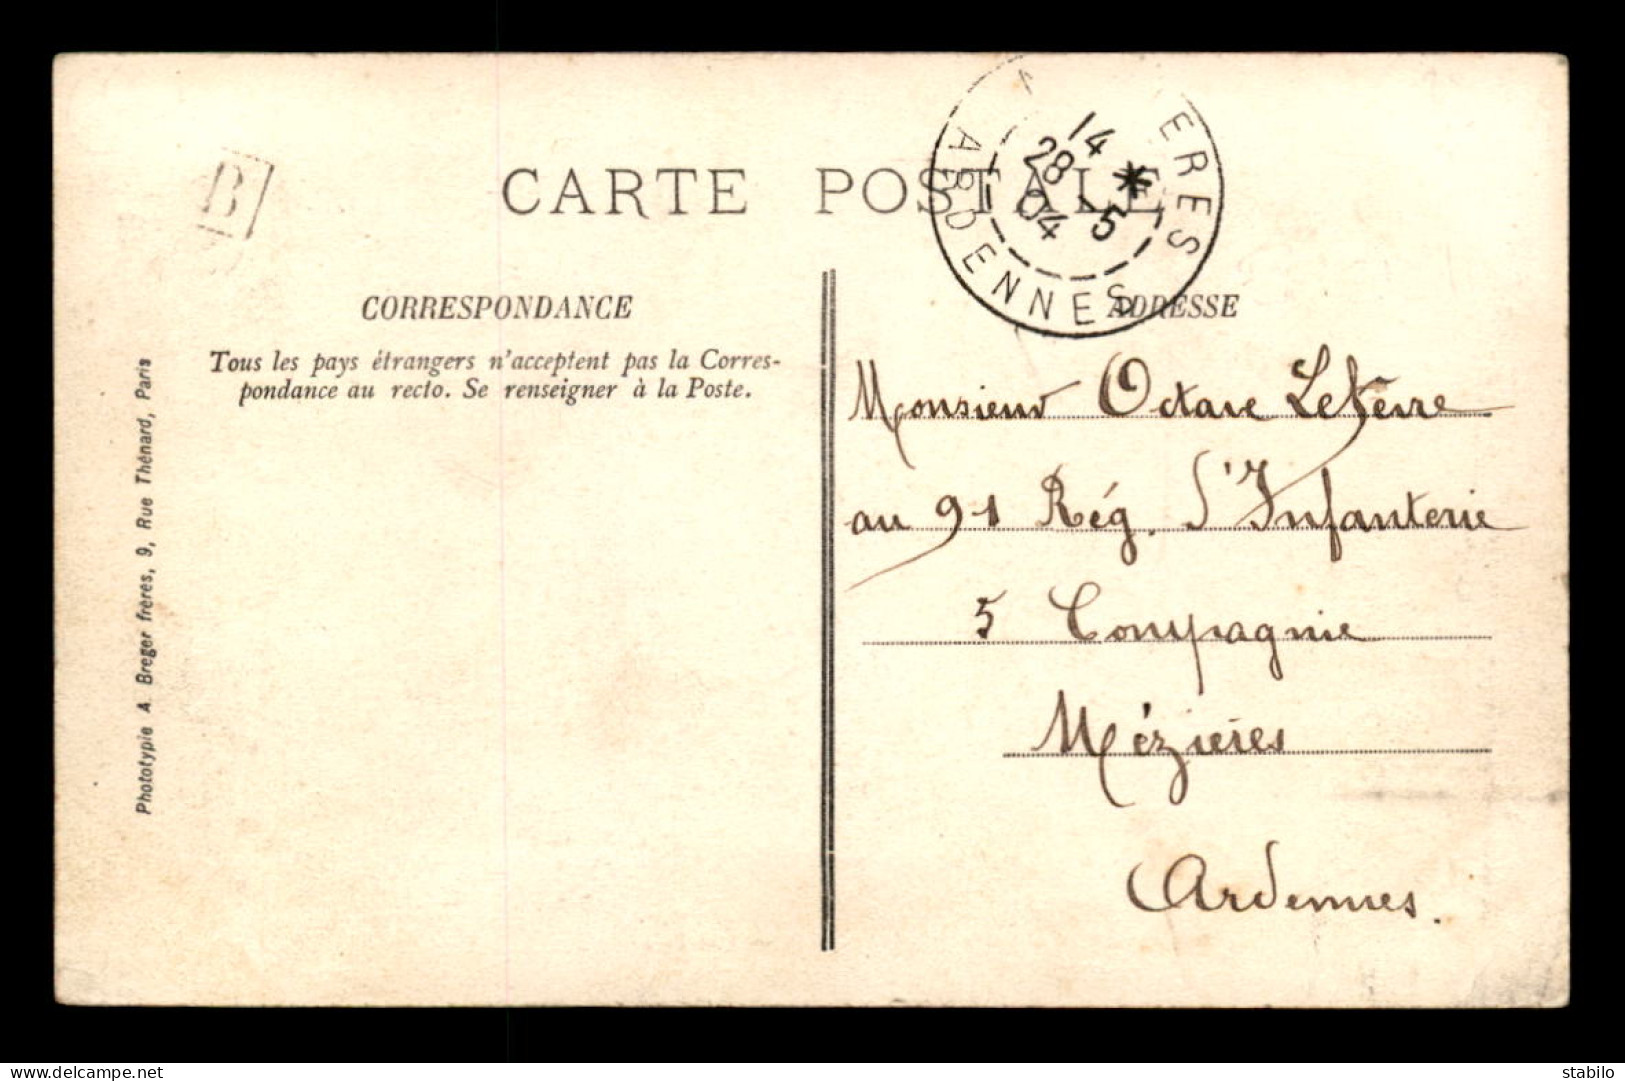 B
CARTE POSTALE
14 *
28 - 5
04
ERES
ARDENNES
CORRESPONDANCE
Tous les pays étrangers n'acceptent pas la Corres-
pondance au recto. Se renseigner à la Poste.
Phototypie A. Breger frères, 9, Rue Thénard, Paris
ADRESSE
Monsieur Octave Lefèvre
au 91 Rég. d'Infanterie
5 Compagnie
Mézières
Ardennes.
delcampe.net
stabilo